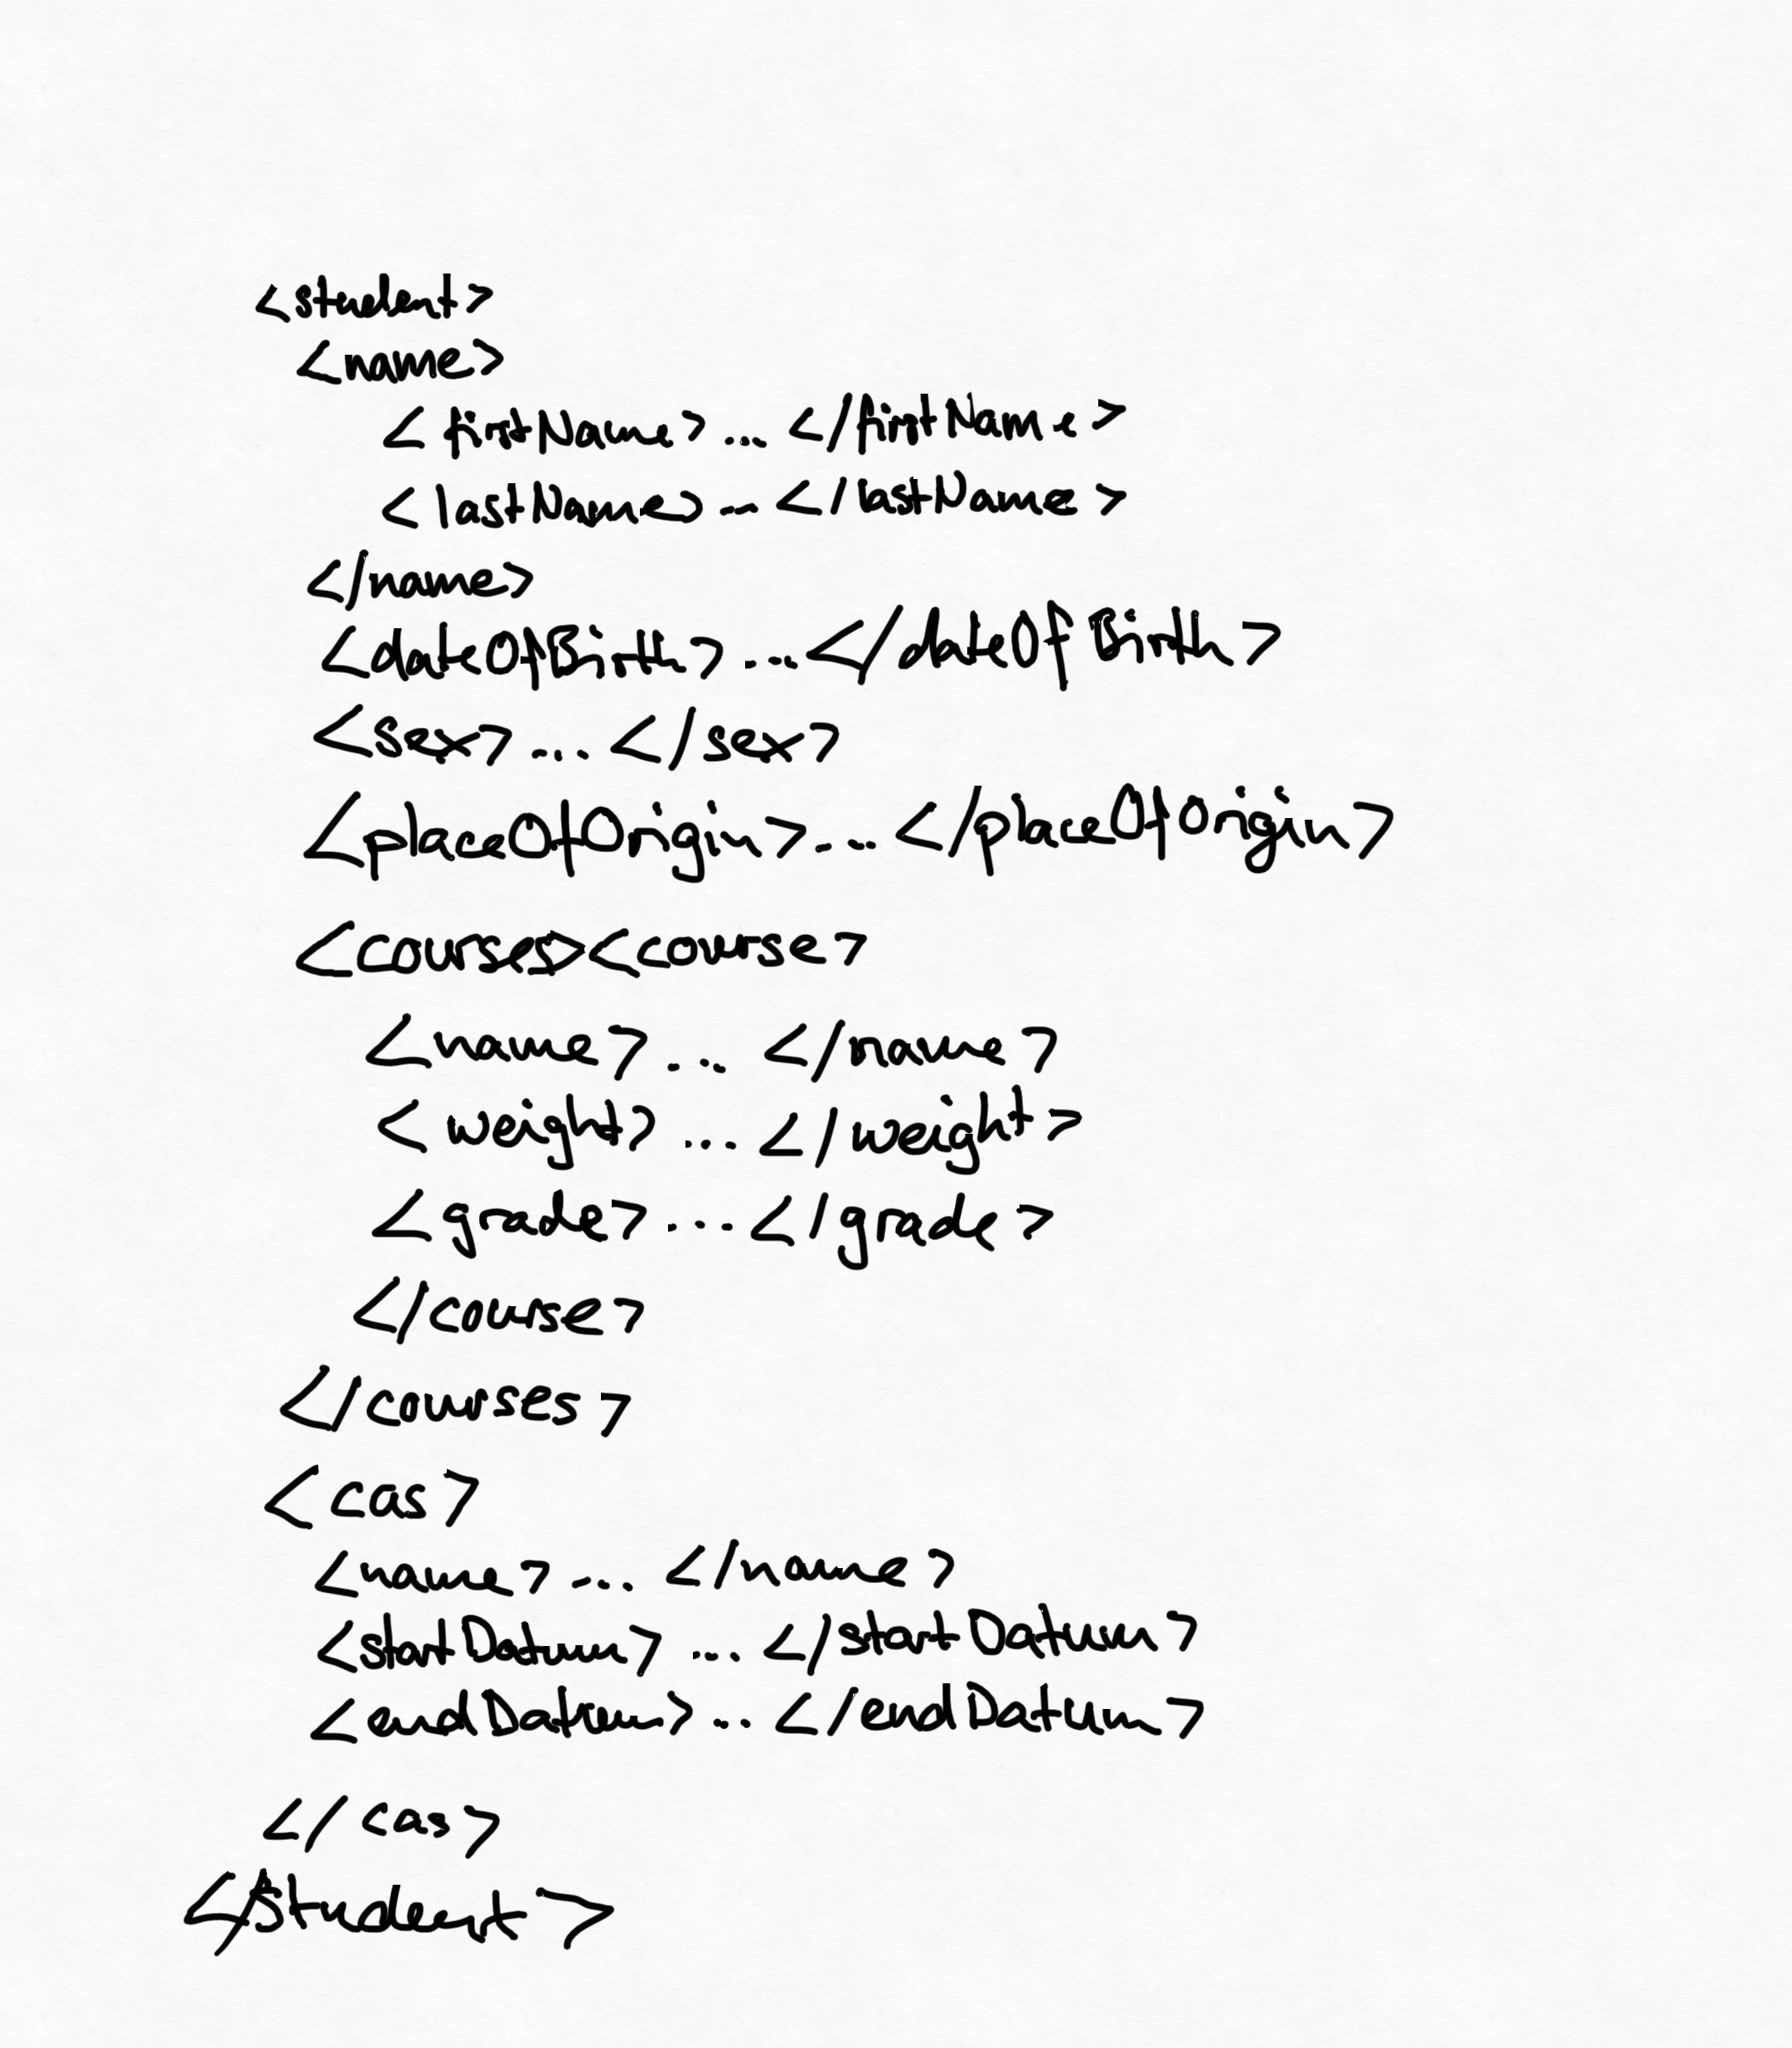 <student>
<name>
<firstName>... </firstName>
<lastName>... </lastName>
</name>
<dateOfBirth>...</dateOfBirth>
<sex>... </sex>
<placeOfOrigin>... </placeOfOrigin>
<courses><course>
<name>... </name>
<weight>... </weight>
<grade>... </grade>
</course>
</courses>
<cas>
<name>... </name>
<startDatum>... </startDatum>
<endDatum>... </endDatum>
</cas>
</student>